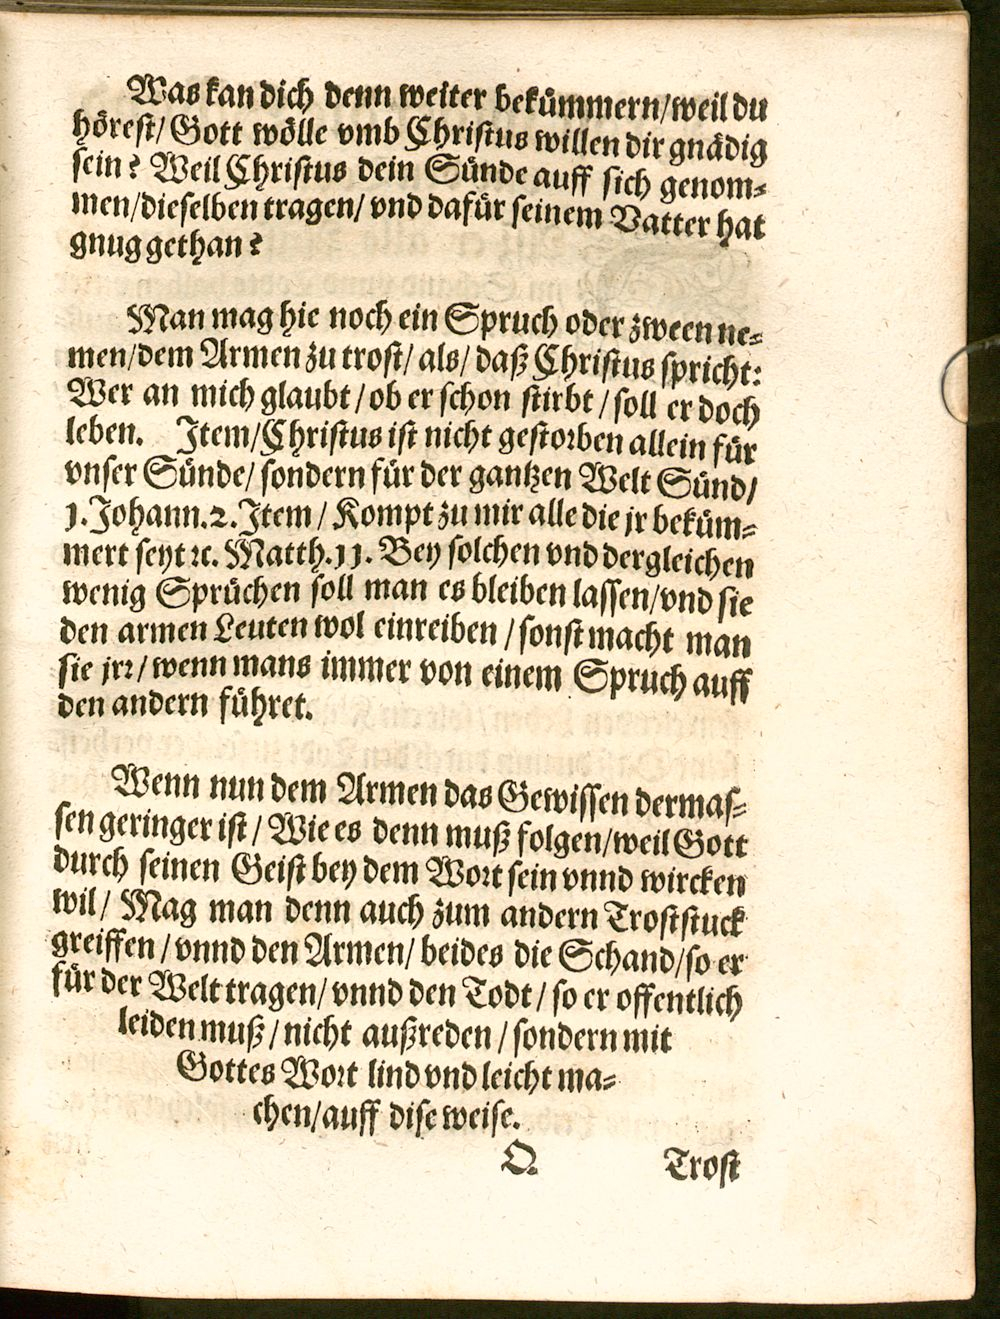 Was kan dich denn weiter bekümmern/weil du
hörest/ Gott wölle vmb Christus willen dir gnädig
sein? Weil Christus dein Sünde auff sich genom⸗
men/dieselben tragen/ vnd dafür seinem Vatter hat
gnug gethan?
Man mag hie noch ein Spruch oder zween ne⸗
men/dem Armen zu trost/ als/ daß Christus spricht:
Wer an mich glaubt / ob er schon stirbt / soll er doch
leben. Item/Christus ist nicht gestorben allein für
vnser Sünde/ sondern für der gantzen Welt Sünd/
1. Johann.2. Item / Kompt zu mir alle die jr beküm⸗
mert seyt ꝛc. Matth.11. Bey solchen vnd dergleichen
wenig Sprüchen soll man es bleiben lassen/vnd sie
den armen Leuten wol einreiben / sonst macht man
sie jrr / wenn mans immer von einem Spruch auff
den andern führet.
Wenn nun dem Armen das Gewissen dermas⸗
sen geringer ist / Wie es denn muß folgen/weil Gott
durch seinen Geist bey dem Wort sein vnnd wircken
wil/ Mag man denn auch zum andern Troststuck
greiffen / vnnd den Armen/ beides die Schand/so er
für der Welt tragen/ vnnd den Todt / so er offentlich
leiden muß / nicht außreden / sondern mit
Gottes Wort lind vnd leicht ma⸗
chen/auff dise weise.
Q. Trost